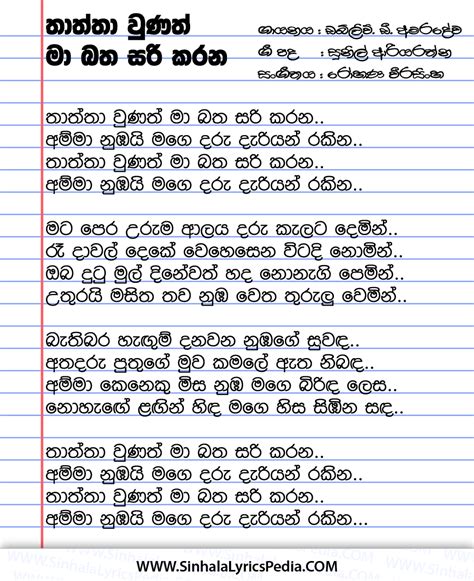 තාත්තා වුණත්
මා බත සරි කරන
ගායනය : ඩබ්ලිව්. ඩී. අමරදේව
ගී පද : සුනිල් ආරියරත්න
සංගීතය : රෝහණ වීරසිංහ
තාත්තා වුණත් මා බත සරි කරන..
අම්මා නුඹයි මගෙ දරු දැරියන් රකින..
තාත්තා වුණත් මා බත සරි කරන..
අම්මා නුඹයි මගෙ දරු දැරියන් රකින..
මට පෙර උරුම ආලය දරු කැලට දෙමින්..
රෑ දාවල් දෙකේ වෙහෙසෙන විටදි නොමින්..
ඔබ දුටු මුල් දිනේවත් හද නොනැගි පෙමින්..
උතුරයි මසිත තව නුඹ වෙත තුරුලු වෙමින්..
බැතිබර හැඟුම් දනවන නුඹගේ සුවඳ..
අතදරු පුතුගේ මුව කමලේ ඇත නිබඳ..
අම්මා කෙනෙකු මිස නුඹ මගෙ බිරිඳ ලෙස..
නොහැඟේ ළඟින් හිඳ මගෙ හිස සිඹින සඳ..
තාත්තා වුණත් මා බත සරි කරන..
අම්මා නුඹයි මගෙ දරු දැරියන් රකින..
තාත්තා වුණත් මා බත සරි කරන..
අම්මා නුඹයි මගෙ දරු දැරියන් රකින...
www.SinhalaLyricsPedia.COM